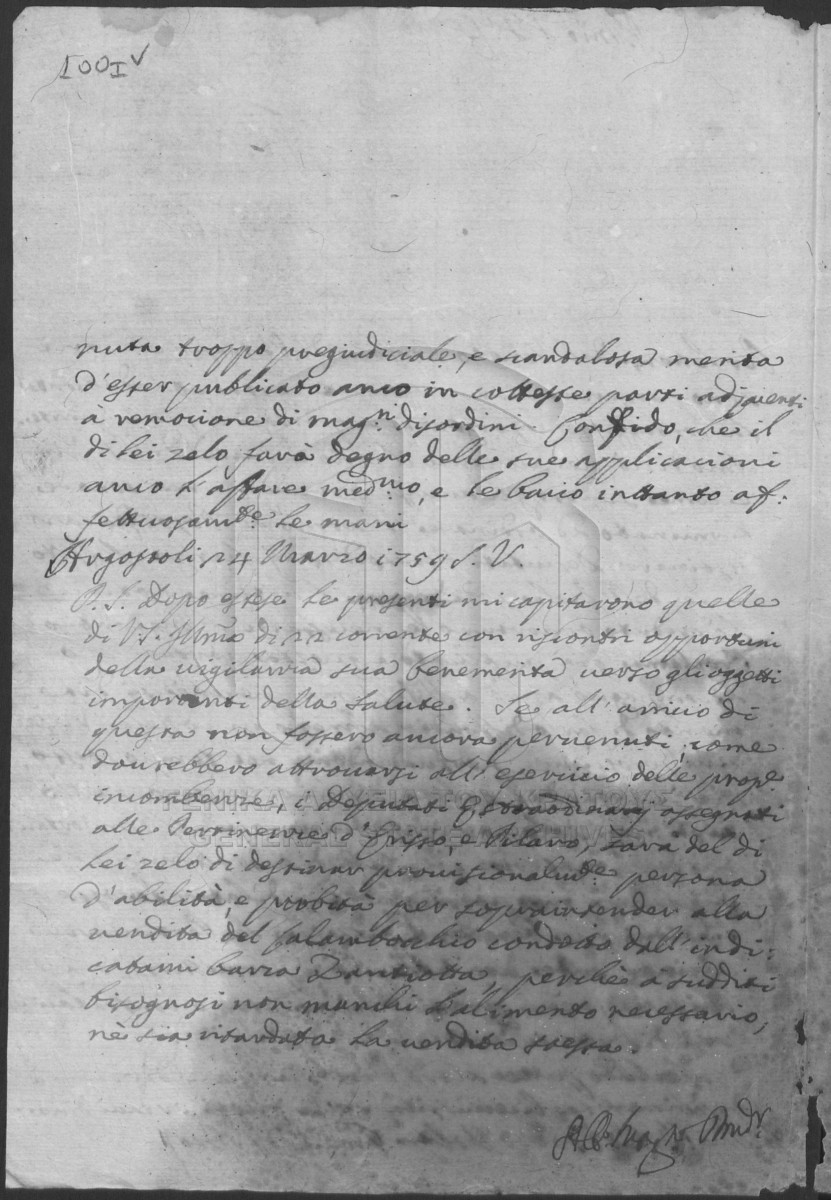 1001v
nuta troppo pregiudiciale, e scandalosa merita
d'esser publicato anco in coteste parti adjacenti
à remocione di magni disordini. Confido, che il
di Lei zelo farà degno delle sue applicacioni
anco l'affare medmo, e le bacio inttanto af:
fettuosamte le mani
Argostoli 24 Marzo 1759 S. V.
P. S. Dopo estese le presenti mi capitarono quelle
di VS. Illma di 22 corrente con riscontri opportuni
della vigilanza sua benemerita verso gli oggetti
importanti della salute. Se all'arrivo di
questa non fossero ancora pervenuti, come
dovrebbero attrovarsi all'esercicio delle prope
incombenze, i Deputati Estraordinarj assegnati
alle Pertinenze d'Erisso, e Pilaro, sarà del di
Lei zelo di destinar provisionalmte persona
d'abilità, e probità per sopraintender alla
vendita del salambochio condotto dall'indi:
catami barca Zantiotta, perchè à sudditi
bisognosi non manchi l'alimento necessario,
nè sia ritardata la vendita stessa.
ΓΕΝΙΚΑ ΑΡΧΕΙΑ ΤΟΥ ΚΡΑΤΟΥΣ
GENERAL STATE ARCHIVES